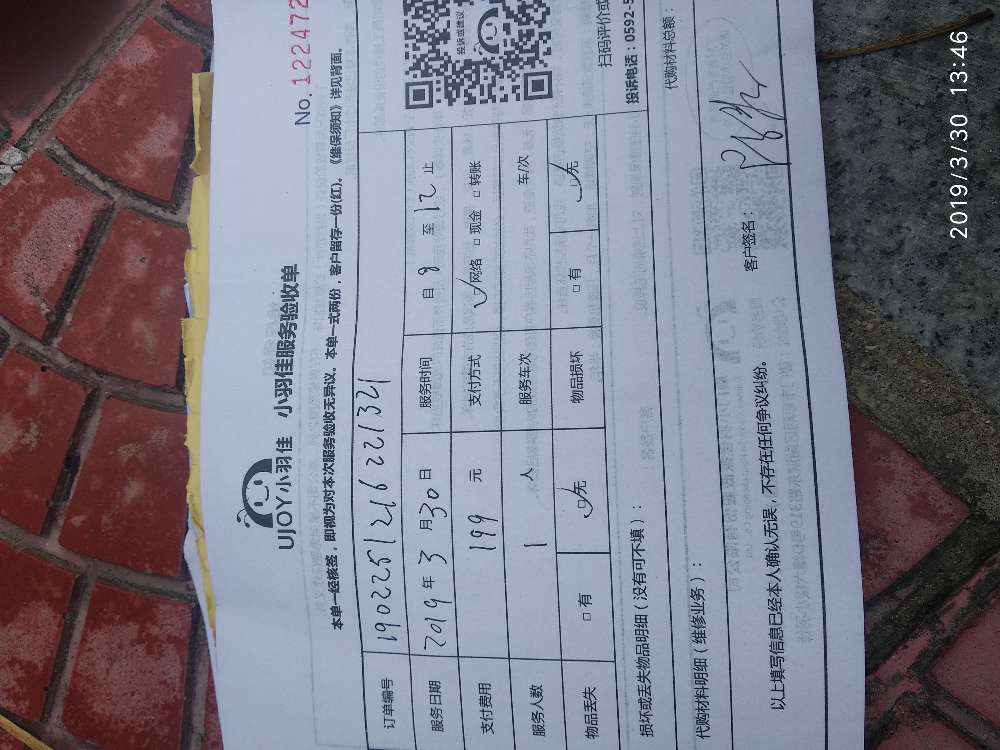 No. 122472
UJOY小羽佳 小羽佳服务验收单
本单一经核签，即视为对本次服务验收无异议。本单一式两份，客户留存一份(红)。《维保须知》详见背面。
订单编号 1902251216221321
服务日期 2019年3月30日 服务时间 自8至12止
支付费用 199元 支付方式 网络 现金 转账
服务人数 1人 服务车次 车/次
物品丢失 有 无 物品损坏 有 无
投诉或建议
扫码评价或
投诉电话：0592-5
损坏或丢失物品明细（没有可不填）：
代购材料明细（维修业务）： 代购材料总额：
以上填写信息已经本人确认无误，不存在任何争议纠纷。 客户签名：
2019/3/30 13:46